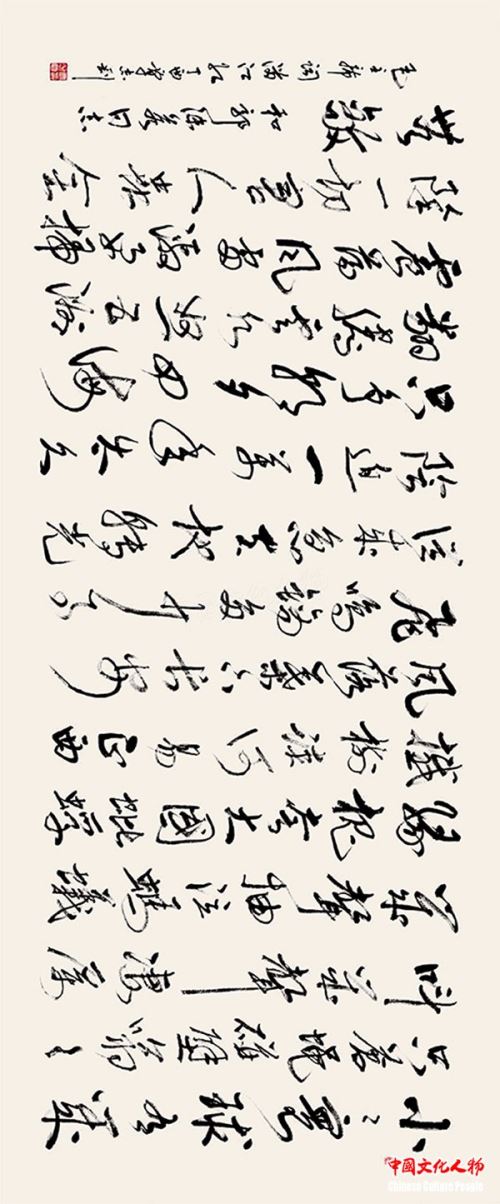 小小寰球有几
个苍蝇碰壁嗡嗡
叫几声凄厉
几声抽泣蚂蚁
缘槐夸大国蚍蜉
撼树谈何易正西
风落叶下长安
飞鸣镝多少事
从来急天地转光
阴迫一万年太久
只争朝夕四海
翻腾云水怒五洲
震荡风雷激要扫
除一切害人虫全
无敌
和郭沫若同志
毛主席词满江红丁酉
中國文化人物
Chinese Culture People